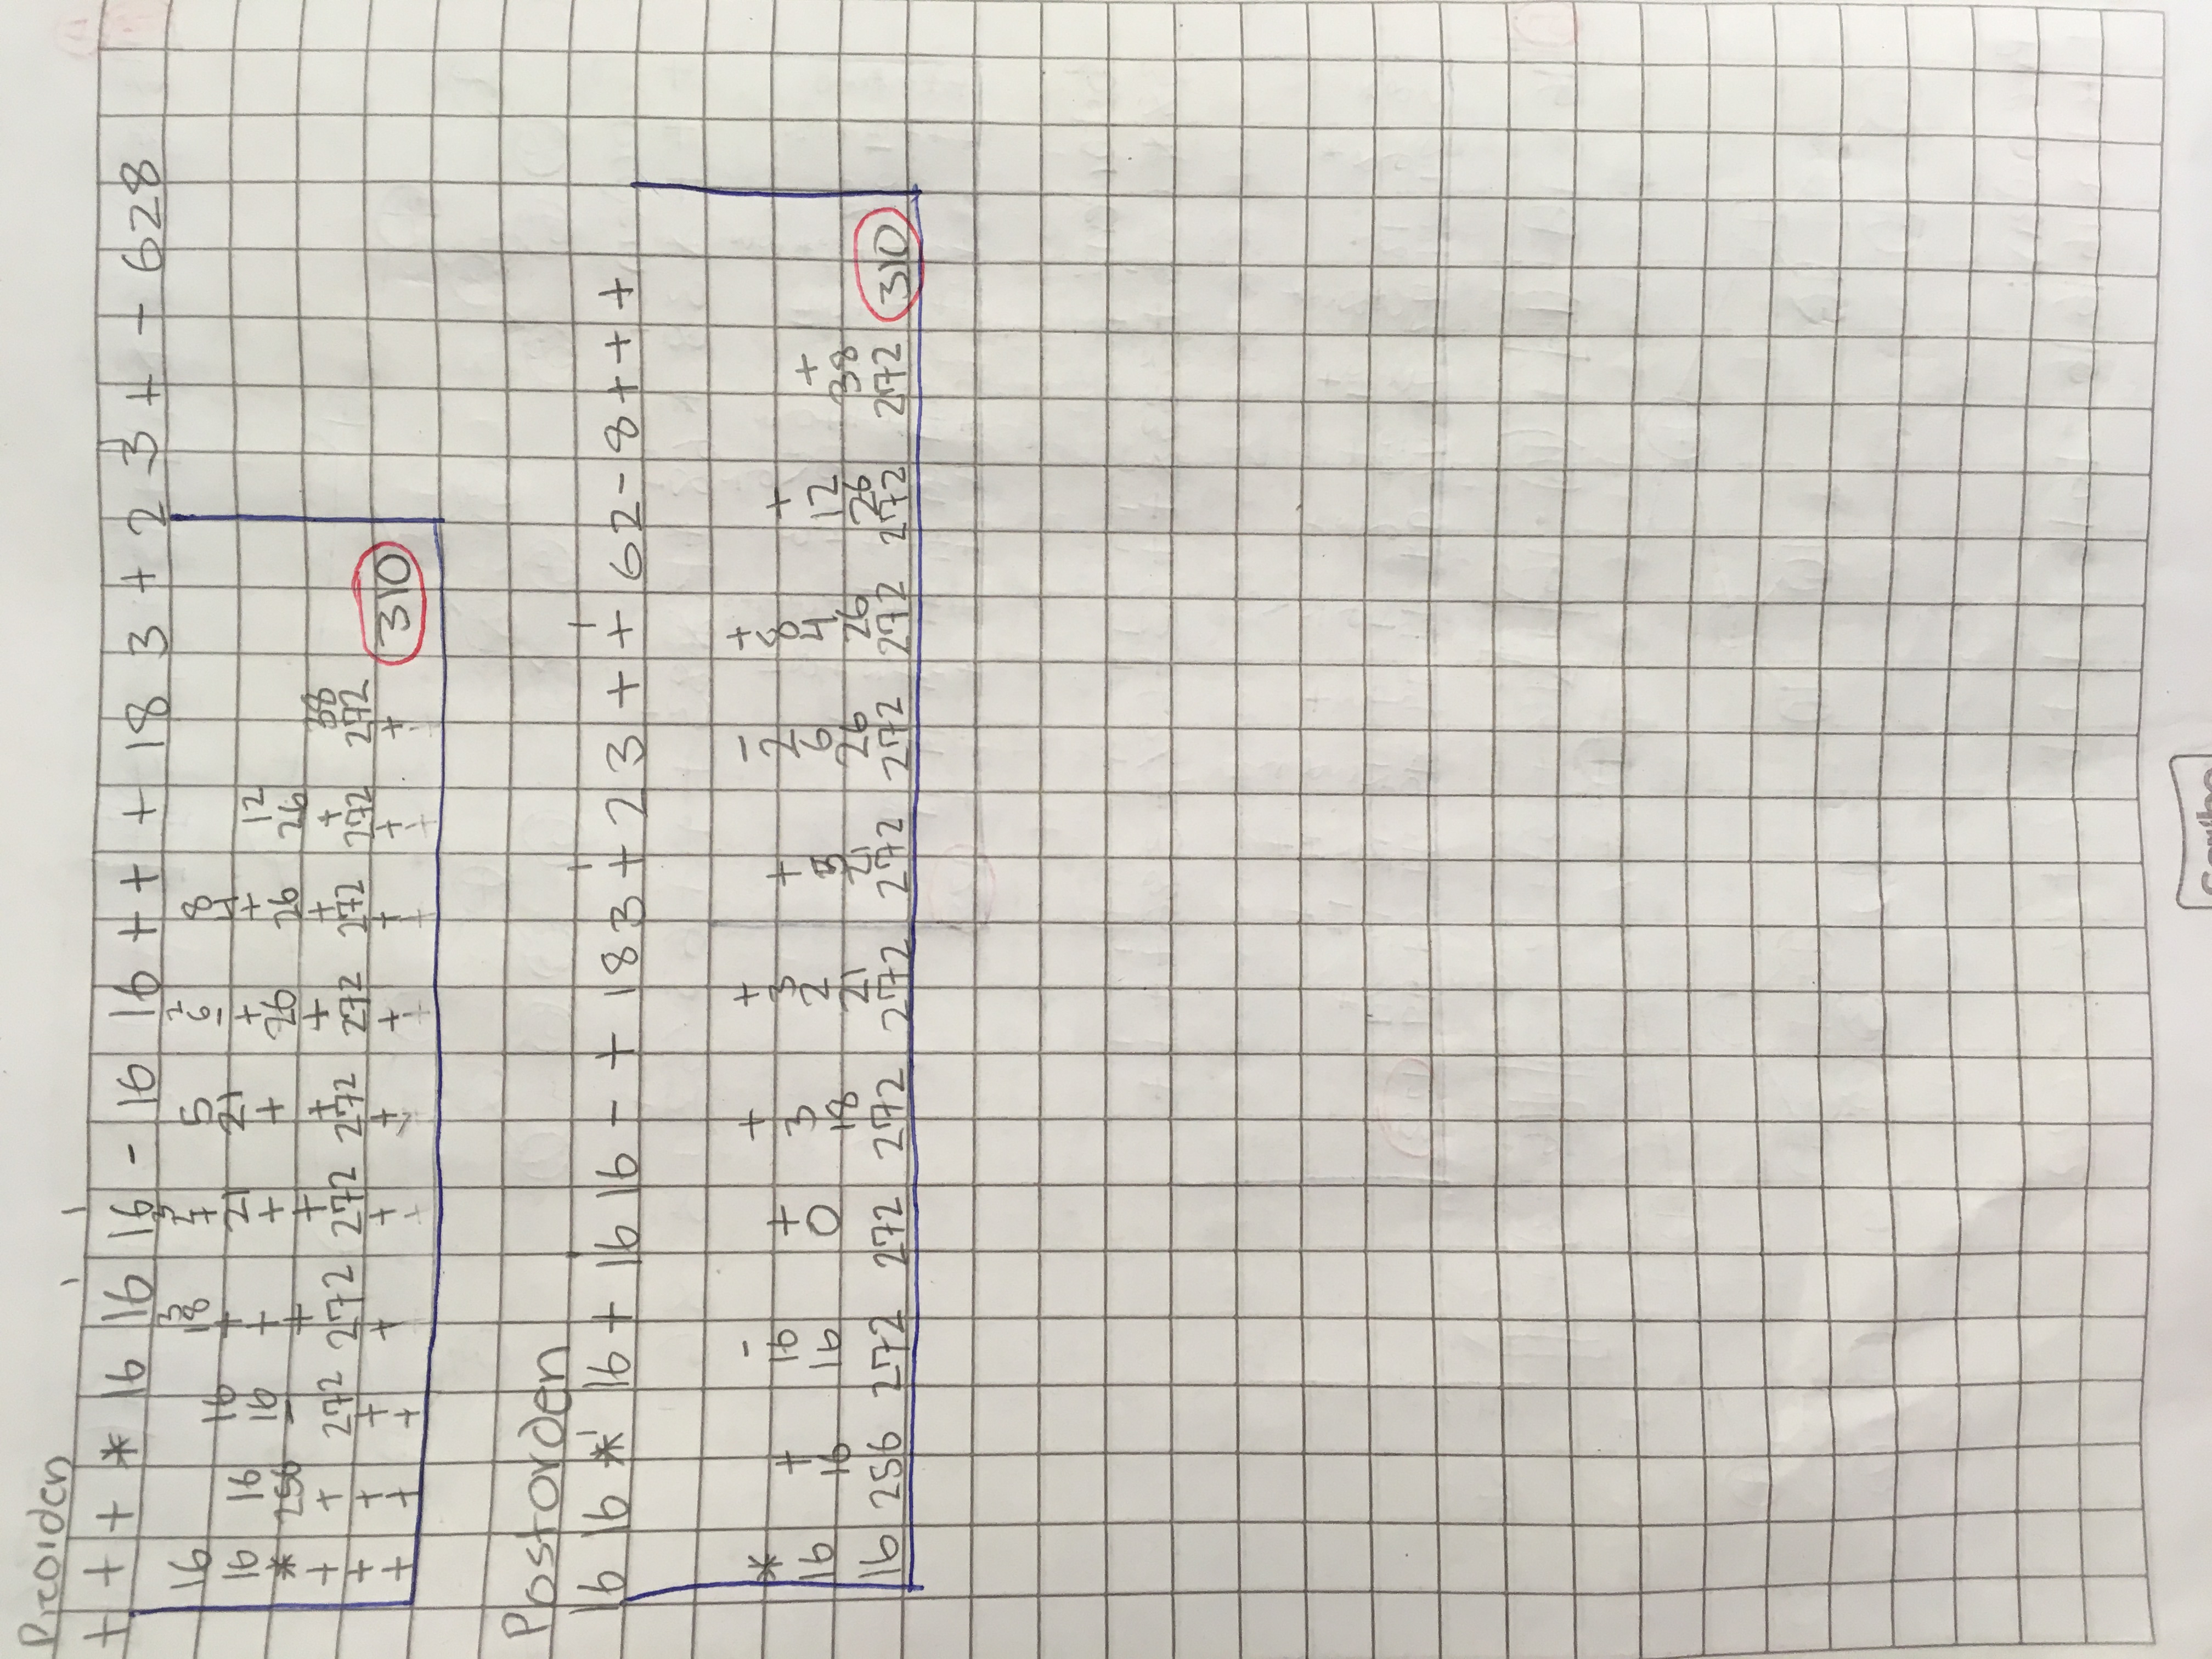 Preorden
+ + + * 16 16 16 - 16 16 + + + 18 3 + 2 3 + - 6 2 8
3 3 2
16 18 + 5 6 8
16 + 21 21 - 4
16 16 16 + + + + + 12
* 256 - + + + 26 26 26
+ + 272 272 272 272 272 272 272 272 38
+ + + + + + + + + + 310
+ + +
Postorden
16 16 * 16 + 16 16 - + 18 3 + 2 3 + + 6 2 - 8 + + +
* - + + - +
+ 16 + 3 3 + 2 8 +
16 16 16 0 18 2 5 6 4 12 +
21 21 26 26 26 38
16 256 272 272 272 272 272 272 272 272 272 310
Scribe